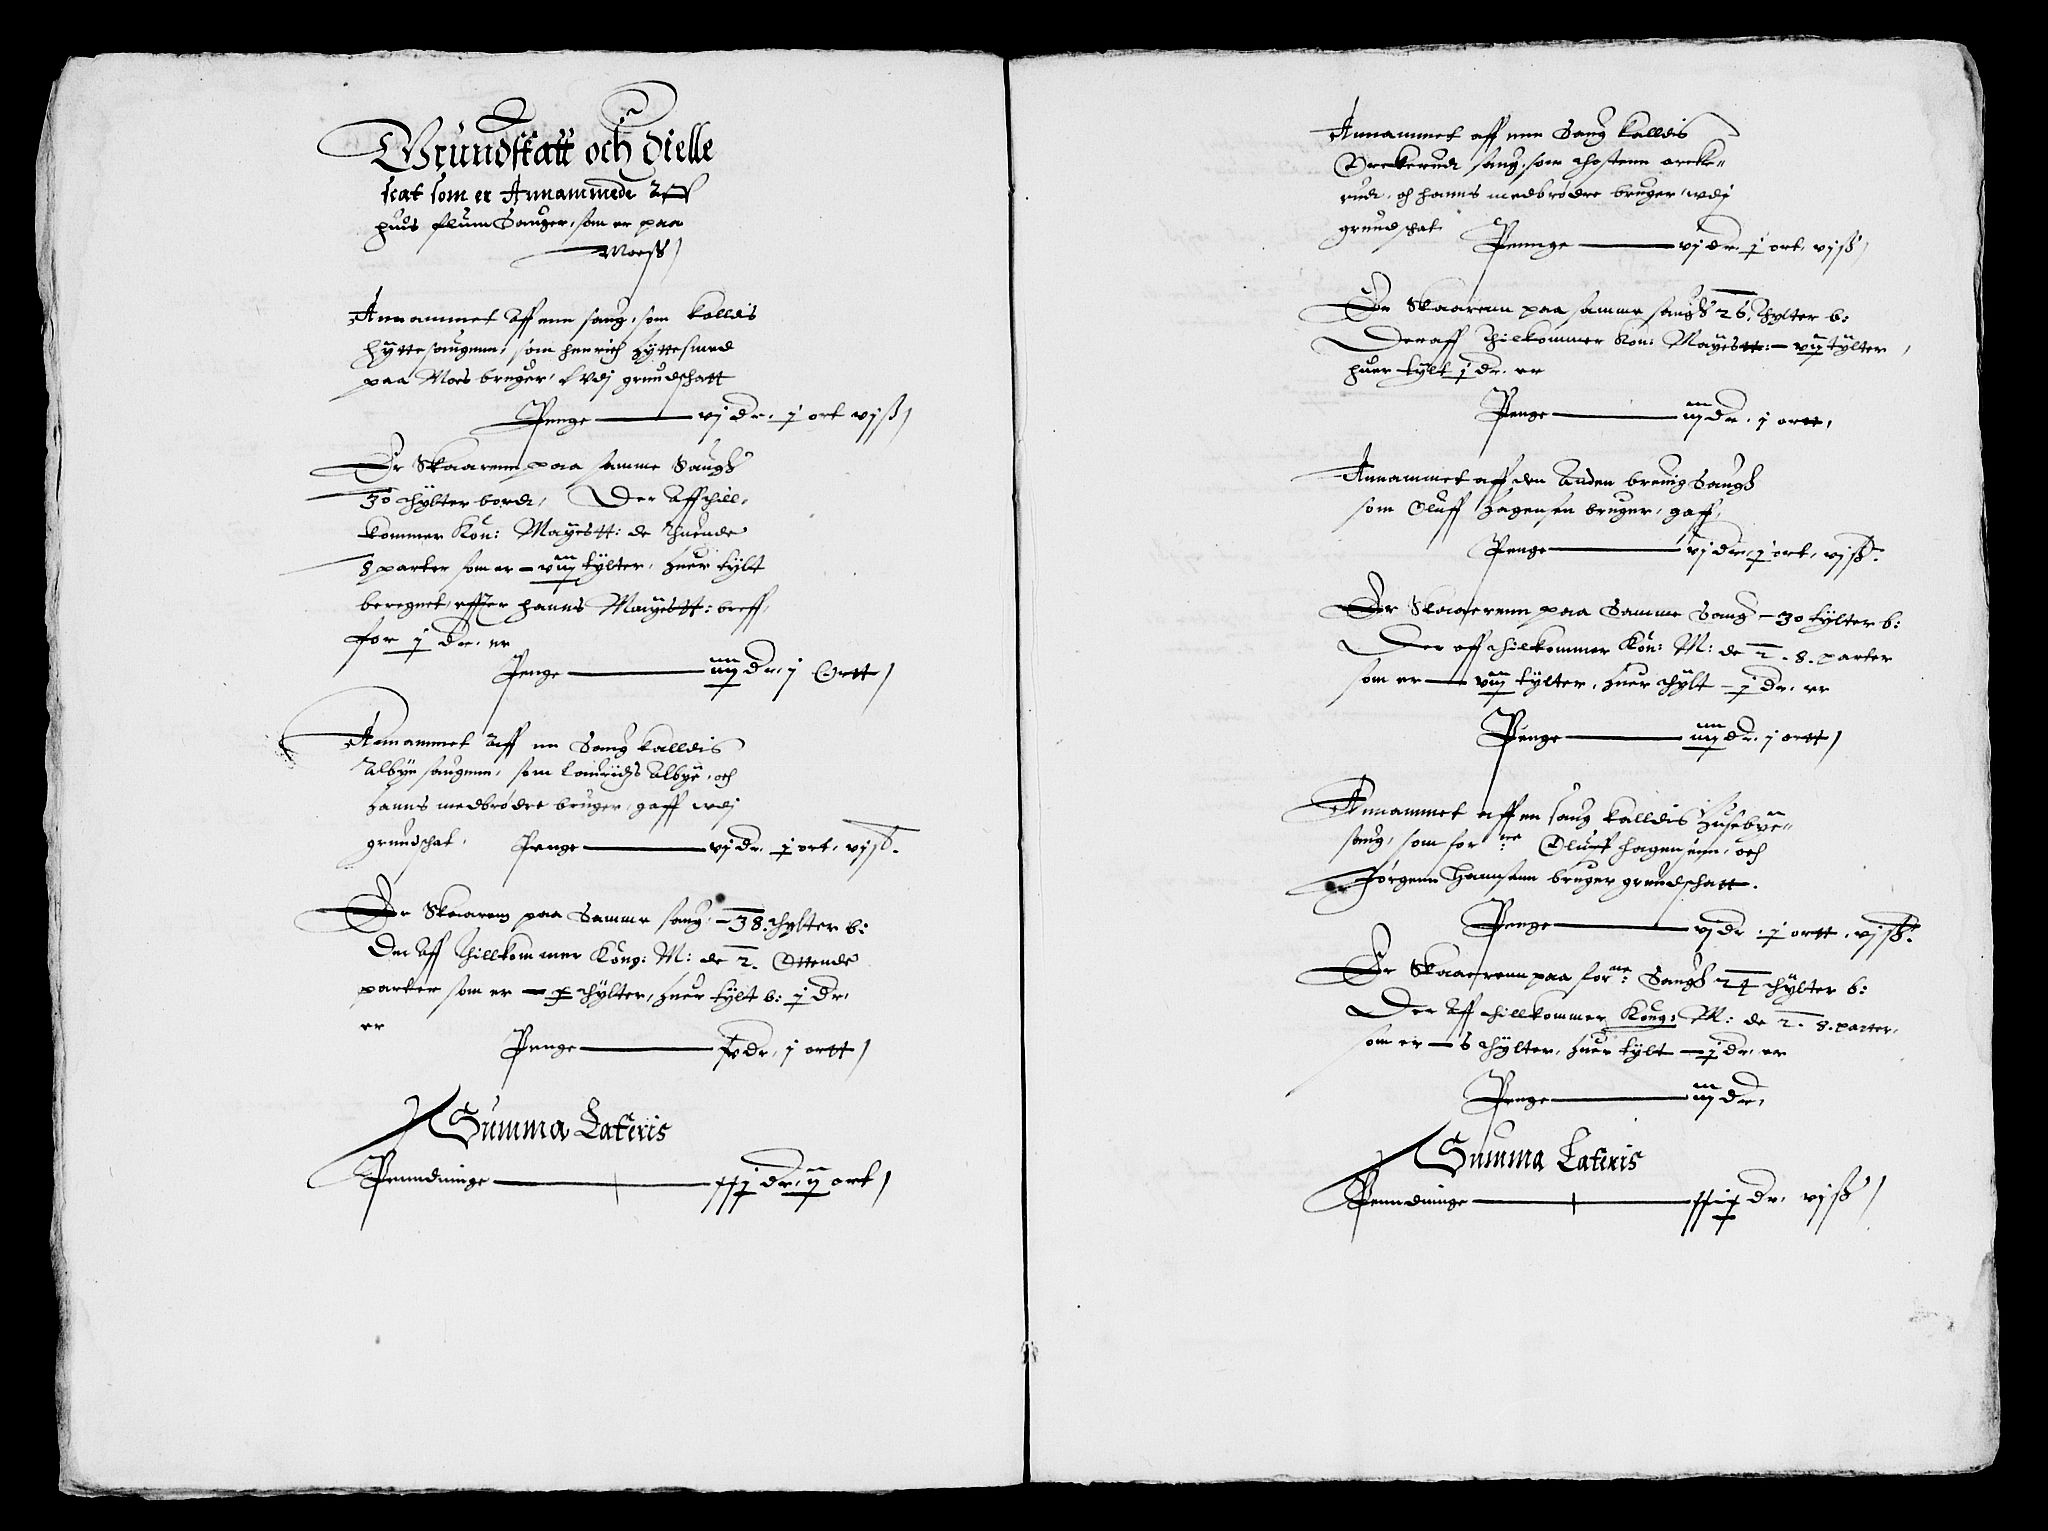 Grundskatt och dielle
scat som er Annammede Aff
huis flum Sauger, som er paa
Moess
Annammet Aff enn saug, som kalldis
hyttesaugenn, som henrich hyttesmed
paa Moes bruger, wdj grundschatt
Penge — vj dr. j ort vj ß
Er Skaarenn paa samme Saugh
30 thylter bordt, Der Aff thill,
kommer Kon: Mayestt: de thuende
8 parter som er — viij tylter, huer tylt
beregnet effter hanns Mayestt: breff,
for j dr. er
Penge — iiij dr. j Ortt
Annammet Aff en Saug kalldis
Albye saugenn, som Lauridtz Albye, och
hanns medbrødre bruger, gaff wdj
grundschat, Penge — vj dr. j ort, vj ß.
Er Skaaren paa Samme saug, — 38. thylter b:
Der Aff thillkommer Kong: M: de 2. Ottende
parter som er — thylter, huer tylt b: j dr.
er
Penge — dr. j ortt
Summa Lateris
Penndninge — xxj dr. ij ort
Annammet aff enn Saug kalldis
saug, som
och hanns medbrødre bruger, wdj
grundschat
Penge — vj dr. j ort, vj ß
Er Skaarenn paa samme saugh 26. thylter b:
Deraff thilkommer Kon: Mayestt: — vij tylter,
huer tylt j dr. er
Penge — iij dr. j ortt,
Annammet aff den Anden Saugh
som Oluff Hagensen bruger, gaff,
Penge — vj dr. j ort, vj ß.
Er Skaaerenn paa Samme Saug — 30 tylter b:
Der aff thilkommer Kon: M: de 2. 8. parter
som er — viij tylter, huer thylt — j dr. er
Penge — iiij dr. j ortt
Annammet aff en saug kalldis Husebye
saug, som forne: Oluff hagensenn, och
Jørgenn Hannsenn bruger grundschatt.
Penge — vj dr. j ortt, vj ß.
Er Skaaerenn paa forne: Saugh 24 thylter b:
Der Aff thillkommer Kong: M: de 2. 8. parter,
som er — 6 thylter, huer tylt — j dr. er
Penge — iij dr.
Summa Lateris
Penndninge — dr. vj ß